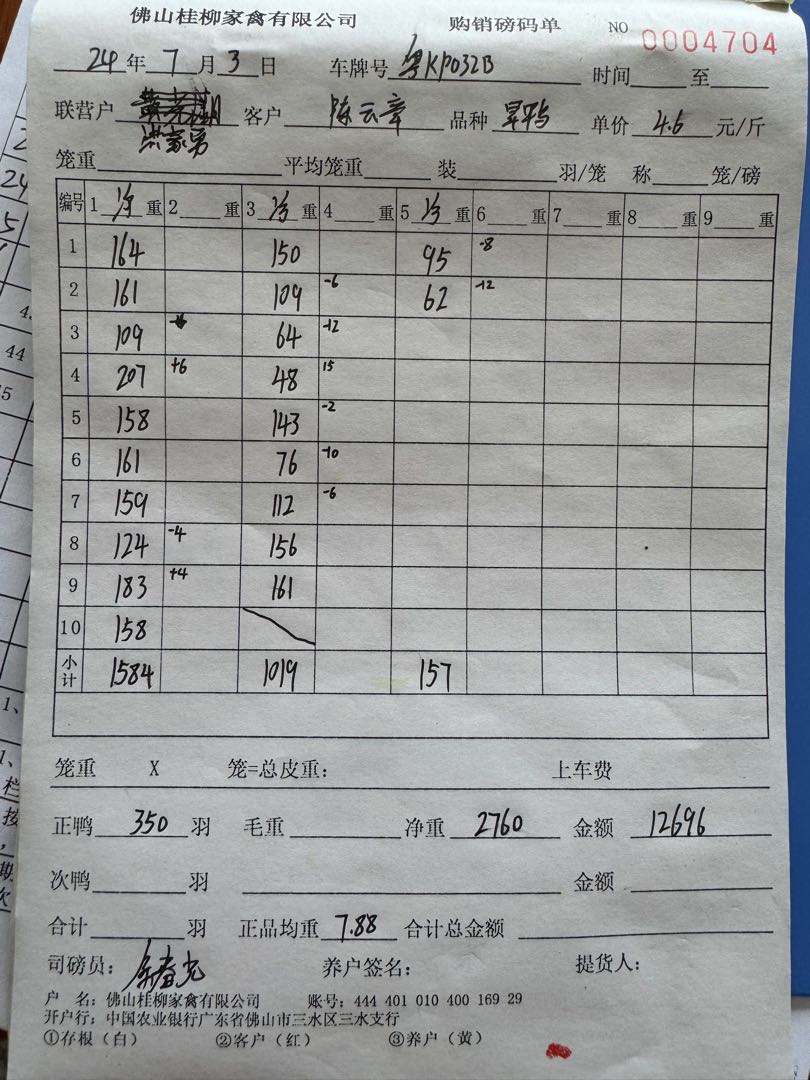 佛山桂柳家禽有限公司 购销磅码单 NO 0004704
24年7月3日 车牌号 粤KP032B 时间 至
联营户 客户 陈云章 品种 旱鸭 单价 4.6 元/斤
笼重 平均笼重 装 羽/笼 称 笼/磅
编号 1 净 重 2 重 3 净 重 4 重 5 净 重 6 重 7 重 8 重 9 重
1 164 150 95 -8
2 161 109 -6 62 -12
3 109 64 -12
4 207 +6 48 15
5 158 143 -2
6 161 76 -10
7 159 112 -6
8 124 -4 156
9 183 +4 161
10 158
小计 1584 1019 157
笼重 X 笼=总皮重: 上车费
正鸭 350 羽 毛重 净重 2760 金额 12696
次鸭 羽 金额
合计 羽 正品均重 7.88 合计总金额
司磅员: 养户签名: 提货人:
户 名: 佛山桂柳家禽有限公司 账号: 444 401 010 400 169 29
开户行: 中国农业银行广东省佛山市三水区三水支行
①存根(白) ②客户(红) ③养户(黄)